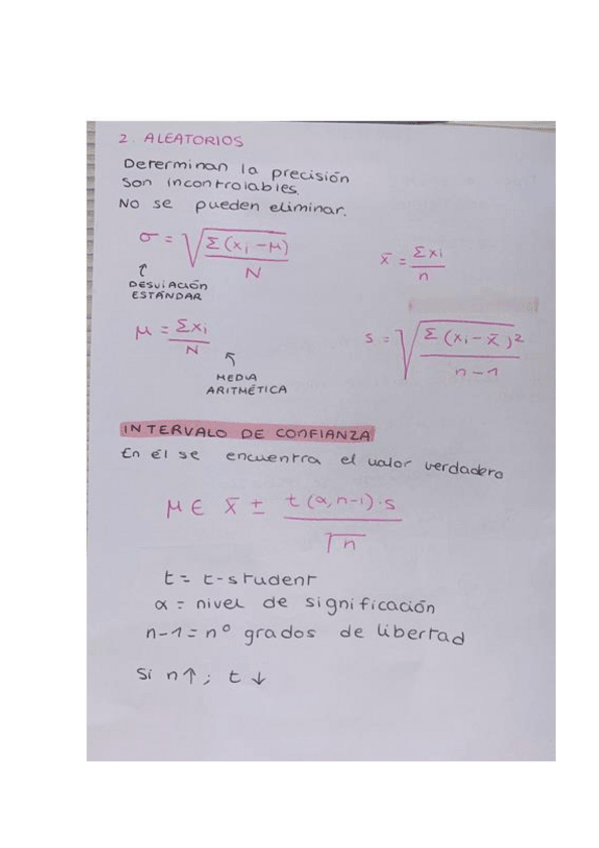 2. ALEATORIOS
Determinan la precisión
Son incontrolables.
No se pueden eliminar.
σ = √(Σ(xᵢ-μ)/N)
x̄ = Σxi/n
↑
DESVIACIÓN
ESTÁNDAR
μ = Σxᵢ/N
s = √(Σ(xᵢ-x̄)²/(n-1))
↖
MEDIA
ARITMÉTICA
INTERVALO DE CONFIANZA
En él se encuentra el valor verdadero
μ ∈ x̄ ± t(α,n-1)·s/√n
t = t-student
α = nivel de significación
n-1 = nº grados de libertad
Si n↑; t↓